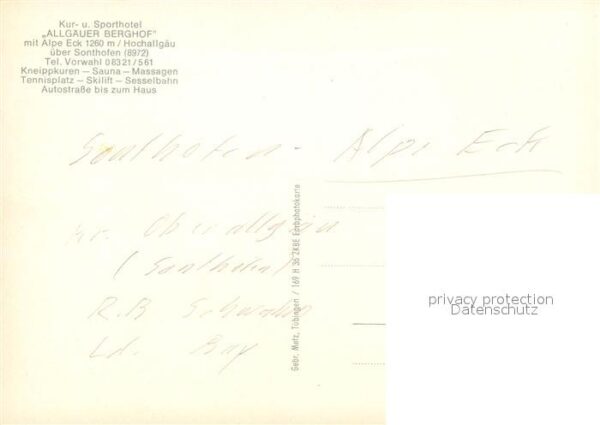 Kur- u. Sporthotel
„ALLGÄUER BERGHOF"
mit Alpe Eck 1260 m / Hochallgäu
über Sonthofen (8972)
Tel. Vorwahl 08321/561
Kneippkuren – Sauna – Massagen
Tennisplatz – Skilift – Sesselbahn
Autostraße bis zum Haus
Sonthofen - Alpe Eck
Kr. Oberallgäu
(Sonthofen)
R.B Schwabn
Ld. Bay
Gebr. Metz, Tübingen / 169 H 36 2KBE Farbphotokarte
privacy protection
Datenschutz